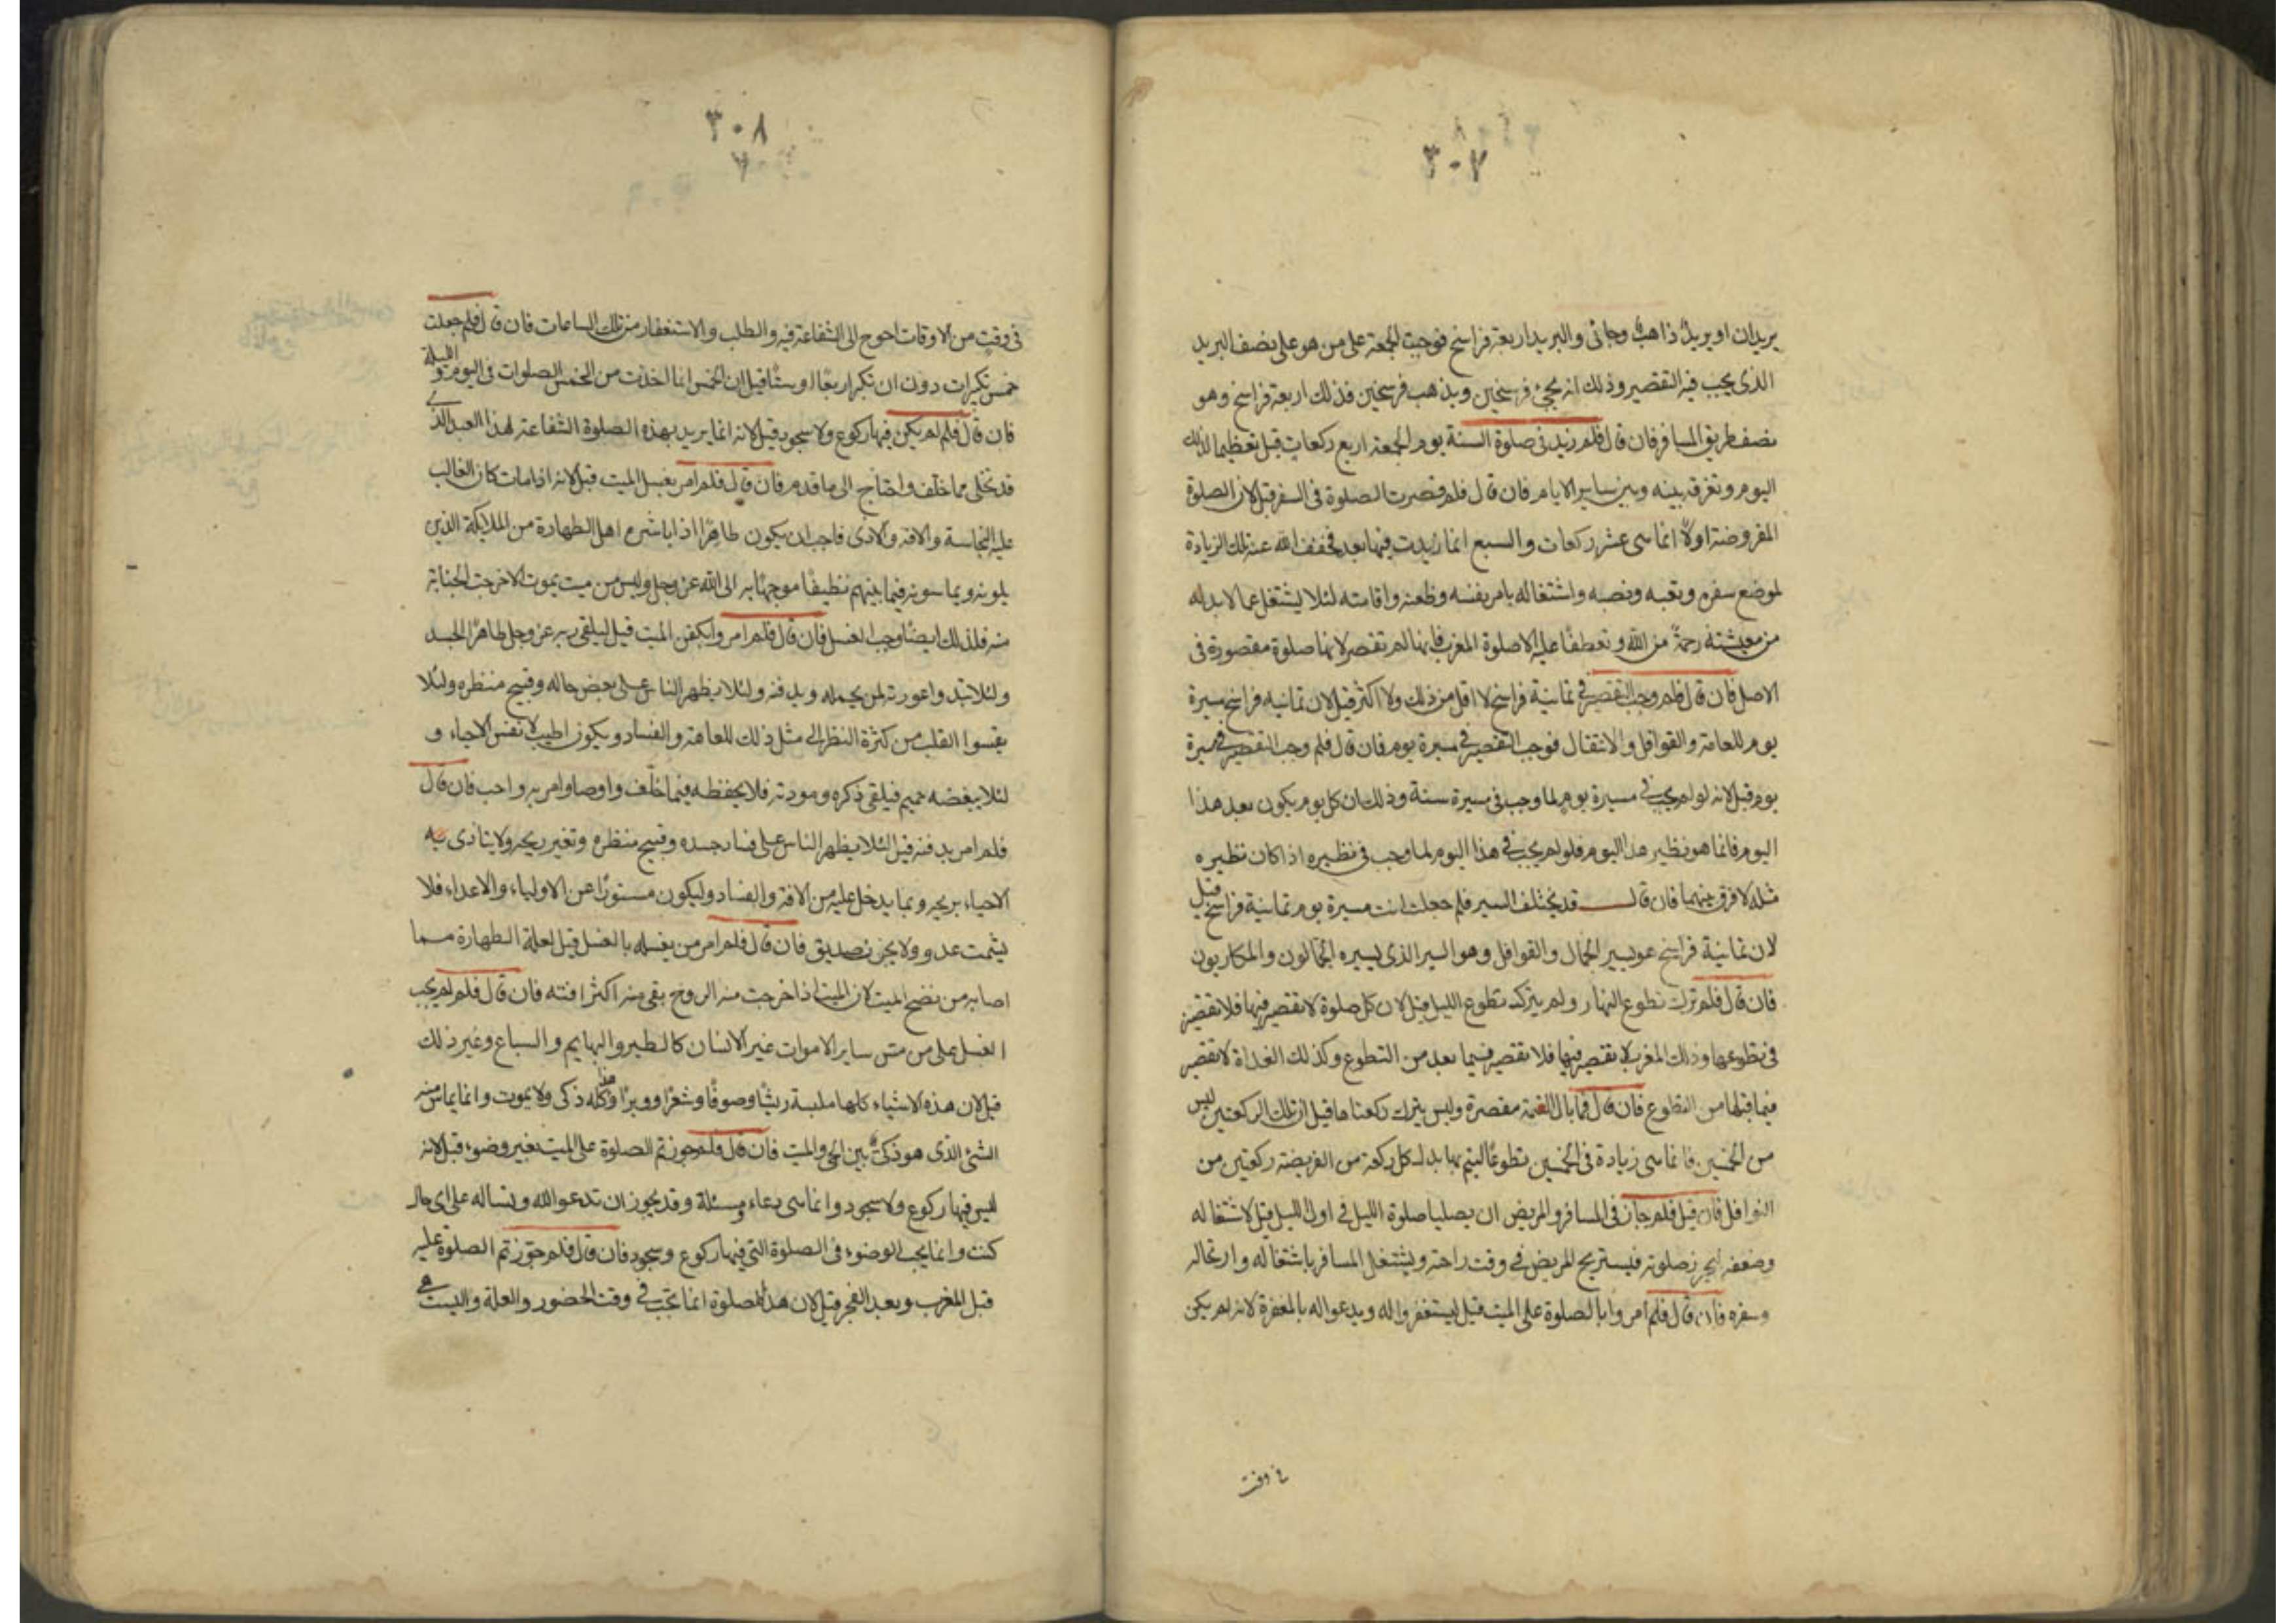 ٣٠٧
بريدان او بريدٌ ذاهبٌ وجائى والبريد اربعة فراسخ فوجبت الجمعة على من هو على نصف البريد
الذى يجب فيه التقصير وذلك انه يجئ فرسخين ويذهب فرسخين فذلك اربعة فراسخ وهو
نصف طريق المسافر فان قال فلم زيد فى صلوة السنة يوم الجمعة اربع ركعات قيل تعظيما لذلك
اليوم وتفرقة بينه وبين ساير الايام فان قال فلم قصرت الصلوة فى السفر قيل لان الصلوة
المفروضة اولًا انما هى عشر ركعات والسبع انما زيدت فيها بعد فخفف الله عنه تلك الزيادة
لموضع سفره وتعبه ونصبه واشتغاله بامر نفسه وظعنه واقامته لئلا يشتغل عما لابد له
من معيشته رحمةً من الله وتعطفًا عليه الا صلوة المغرب فانها لم تقصر لانها صلوة مقصورة فى
الاصل فان قال فلم وجب التقصير فى ثمانية فراسخ لا اقل من ذلك ولا اكثر قيل لان ثمانيه فراسخ مسيرة
يوم للعامة والقوافل والاثقال فوجب التقصير فى مسيرة يوم فان قال فلم وجب التقصير فى مسيرة
يوم قيل لانه لو لم يجب فى مسيرة يوم لما وجب فى مسيرة سنة وذلك ان كل يوم يكون بعد هذا
اليوم فانما هو نظير هذا اليوم فلو لم يجب فى هذا اليوم لما وجب فى نظيره اذا كان نظيره
مثله لا فرق بينهما فان قال قد يختلف السير فلم جعلت انت مسيرة يوم ثمانية فراسخ قيل
لان ثمانية فراسخ هو سير الجمال والقوافل وهو السير الذى يسيره الجمالون والمكاريون
فان قال فلم ترك تطوع النهار ولم يترك تطوع الليل قيل لان كل صلوة لا تقصير فيها فلا تقصير
فى تطوعها وذلك المغرب لا تقصير فيها فلا تقصير فيما بعد من التطوع وكذلك الغداة لا تقصير
فيما قبلها من التطوع فان قال فما بال العتمة مقصرة وليس يترك ركعتاها قيل ان تلك الركعتين ليس
من الخمسين فانما هى زيادة فى الخمسين تطوعًا ليتم بها بدل كل ركعة من الفريضة ركعتين من
النوافل فان قيل فلم جاز فى المسافر والمريض ان يصليا صلوة الليل فى اول الليل قيل لاشتغاله
وضعفه ليحرز صلوته فيستريح المريض فى وقت راحته ويشتغل المسافر باشتغاله وارتحاله
وسفره فان قال فلم امروا بالصلوة على الميت قيل ليستغفروا له ويدعوا له بالمغفرة لانه لم يكن
فى وقت
٣٠٨
فى وقت من الاوقات احوج الى الشفاعة فيه والطلب والاستغفار من تلك الساعات فان قال فلم جعلت
خمس تكبيرات دون ان تكبر اربعًا او ستًا قيل ان الخمس انما اخذت من الخمس الصلوات فى اليوم والليلة
فان قال فلم لم يكن فيها ركوع ولا سجود قيل لانه انما يريد بهذه الصلوة الشفاعة لهذا العبد الذى
قد تخلى مما خلف واحتاج الى ما قدم فان قال فلم امر بغسل الميت قيل لانه اذا مات كان الغالب
عليه النجاسة والافة والاذى فاحب ان يكون طاهرًا اذا باشره اهل الطهارة من الملايكة الذين
يلونه ويماسونه فيما بينهم نظيفًا موجهًا به الى الله عز وجل وليس من ميت يموت الا خرجت الجنابة
منه فلذلك ايضًا وجب الغسل فان قال فلم امروا بكفن الميت قيل ليلقى ربه عز وجل طاهر الجسد
ولئلا تبدوا عورته لمن يحمله ويدفنه ولئلا يظهر الناس على بعض حاله وقبيح منظره ولئلا
يقسوا القلب من كثرة النظر الى مثل ذلك للعاهة والفساد ويكون اطيب لانفس الاحياء و
لئلا يبغضه حميم فيلقى ذكره ومودته فلا يحفظه فيما خلّف واوصا وامر به واحب فان قال
فلم امر بدفنه قيل لئلا يظهر الناس على فساد جسده وقبيح منظره وتغير ريحه ولا يتاذى به
الاحياء بريحه وبما يدخل عليه من الافة والفساد وليكون مستورًا عن الاولياء والاعداء فلا
يشمت عدو ولا يحزن صديق فان قال فلم امر من يغسله بالغسل قيل لعلة الطهارة مما
اصابه من نضح الميت لان الميت اذا خرجت منه الروح بقى منه اكثر افته فان قال فلم لم يجب
الغسل على من مس ساير الاموات غير الانسان كالطير والبهايم والسباع وغير ذلك
قيل لان هذه الاشياء كلها ملبسة ريشًا وصوفًا وشعرًا ووبرًا وهذا كله ذكى ولا يموت وانما يماس منه
الشئ الذى هو ذكى بين الحى والميت فان قال فلم جوزتم الصلوة على الميت بغير وضوء قيل لانه
ليس فيها ركوع ولا سجود وانما هى دعاء ومسئلة وقد يجوز ان تدعوا الله وتساله على اى حال
كنت وانما يجب الوضوء فى الصلوة التى فيها ركوع وسجود فان قال فلم جوّزتم الصلوة عليه
قبل المغرب وبعد الفجر قيل لان هذه الصلوة انما تجب فى وقت الحضور والعلة وليست هى